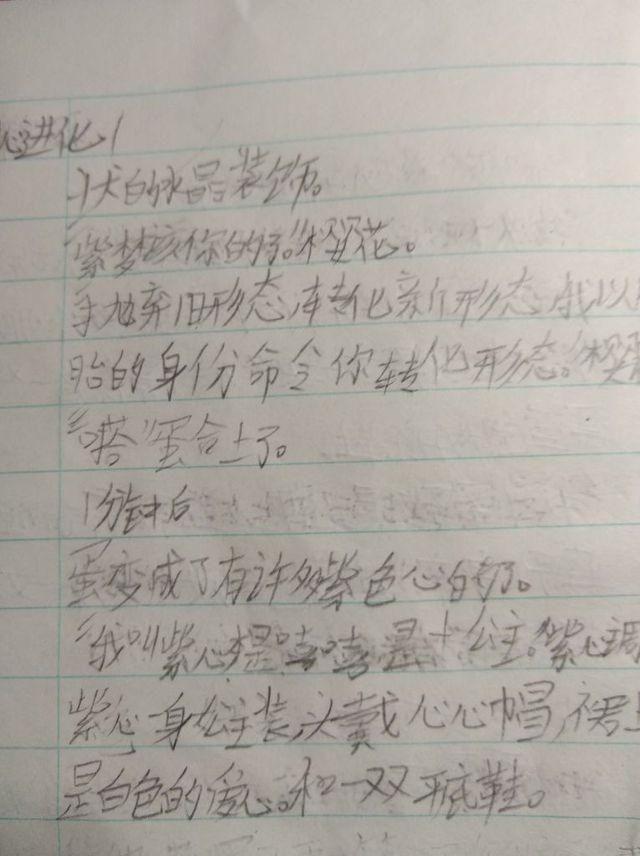 心进化.1
状的水晶装饰。
紫梦该你的了。”樱花。
抛弃旧形态,转化新形态,我以
胎的身份命令你转化形态。”樱
“嗒”蛋合上了。
1分钟后
蛋变成了有许多紫色心的了。
“我叫紫心,嘻嘻是个公主。”紫心
紫心一身公主装,头戴心心帽,裙
是白色的爱心。和一双平底鞋。